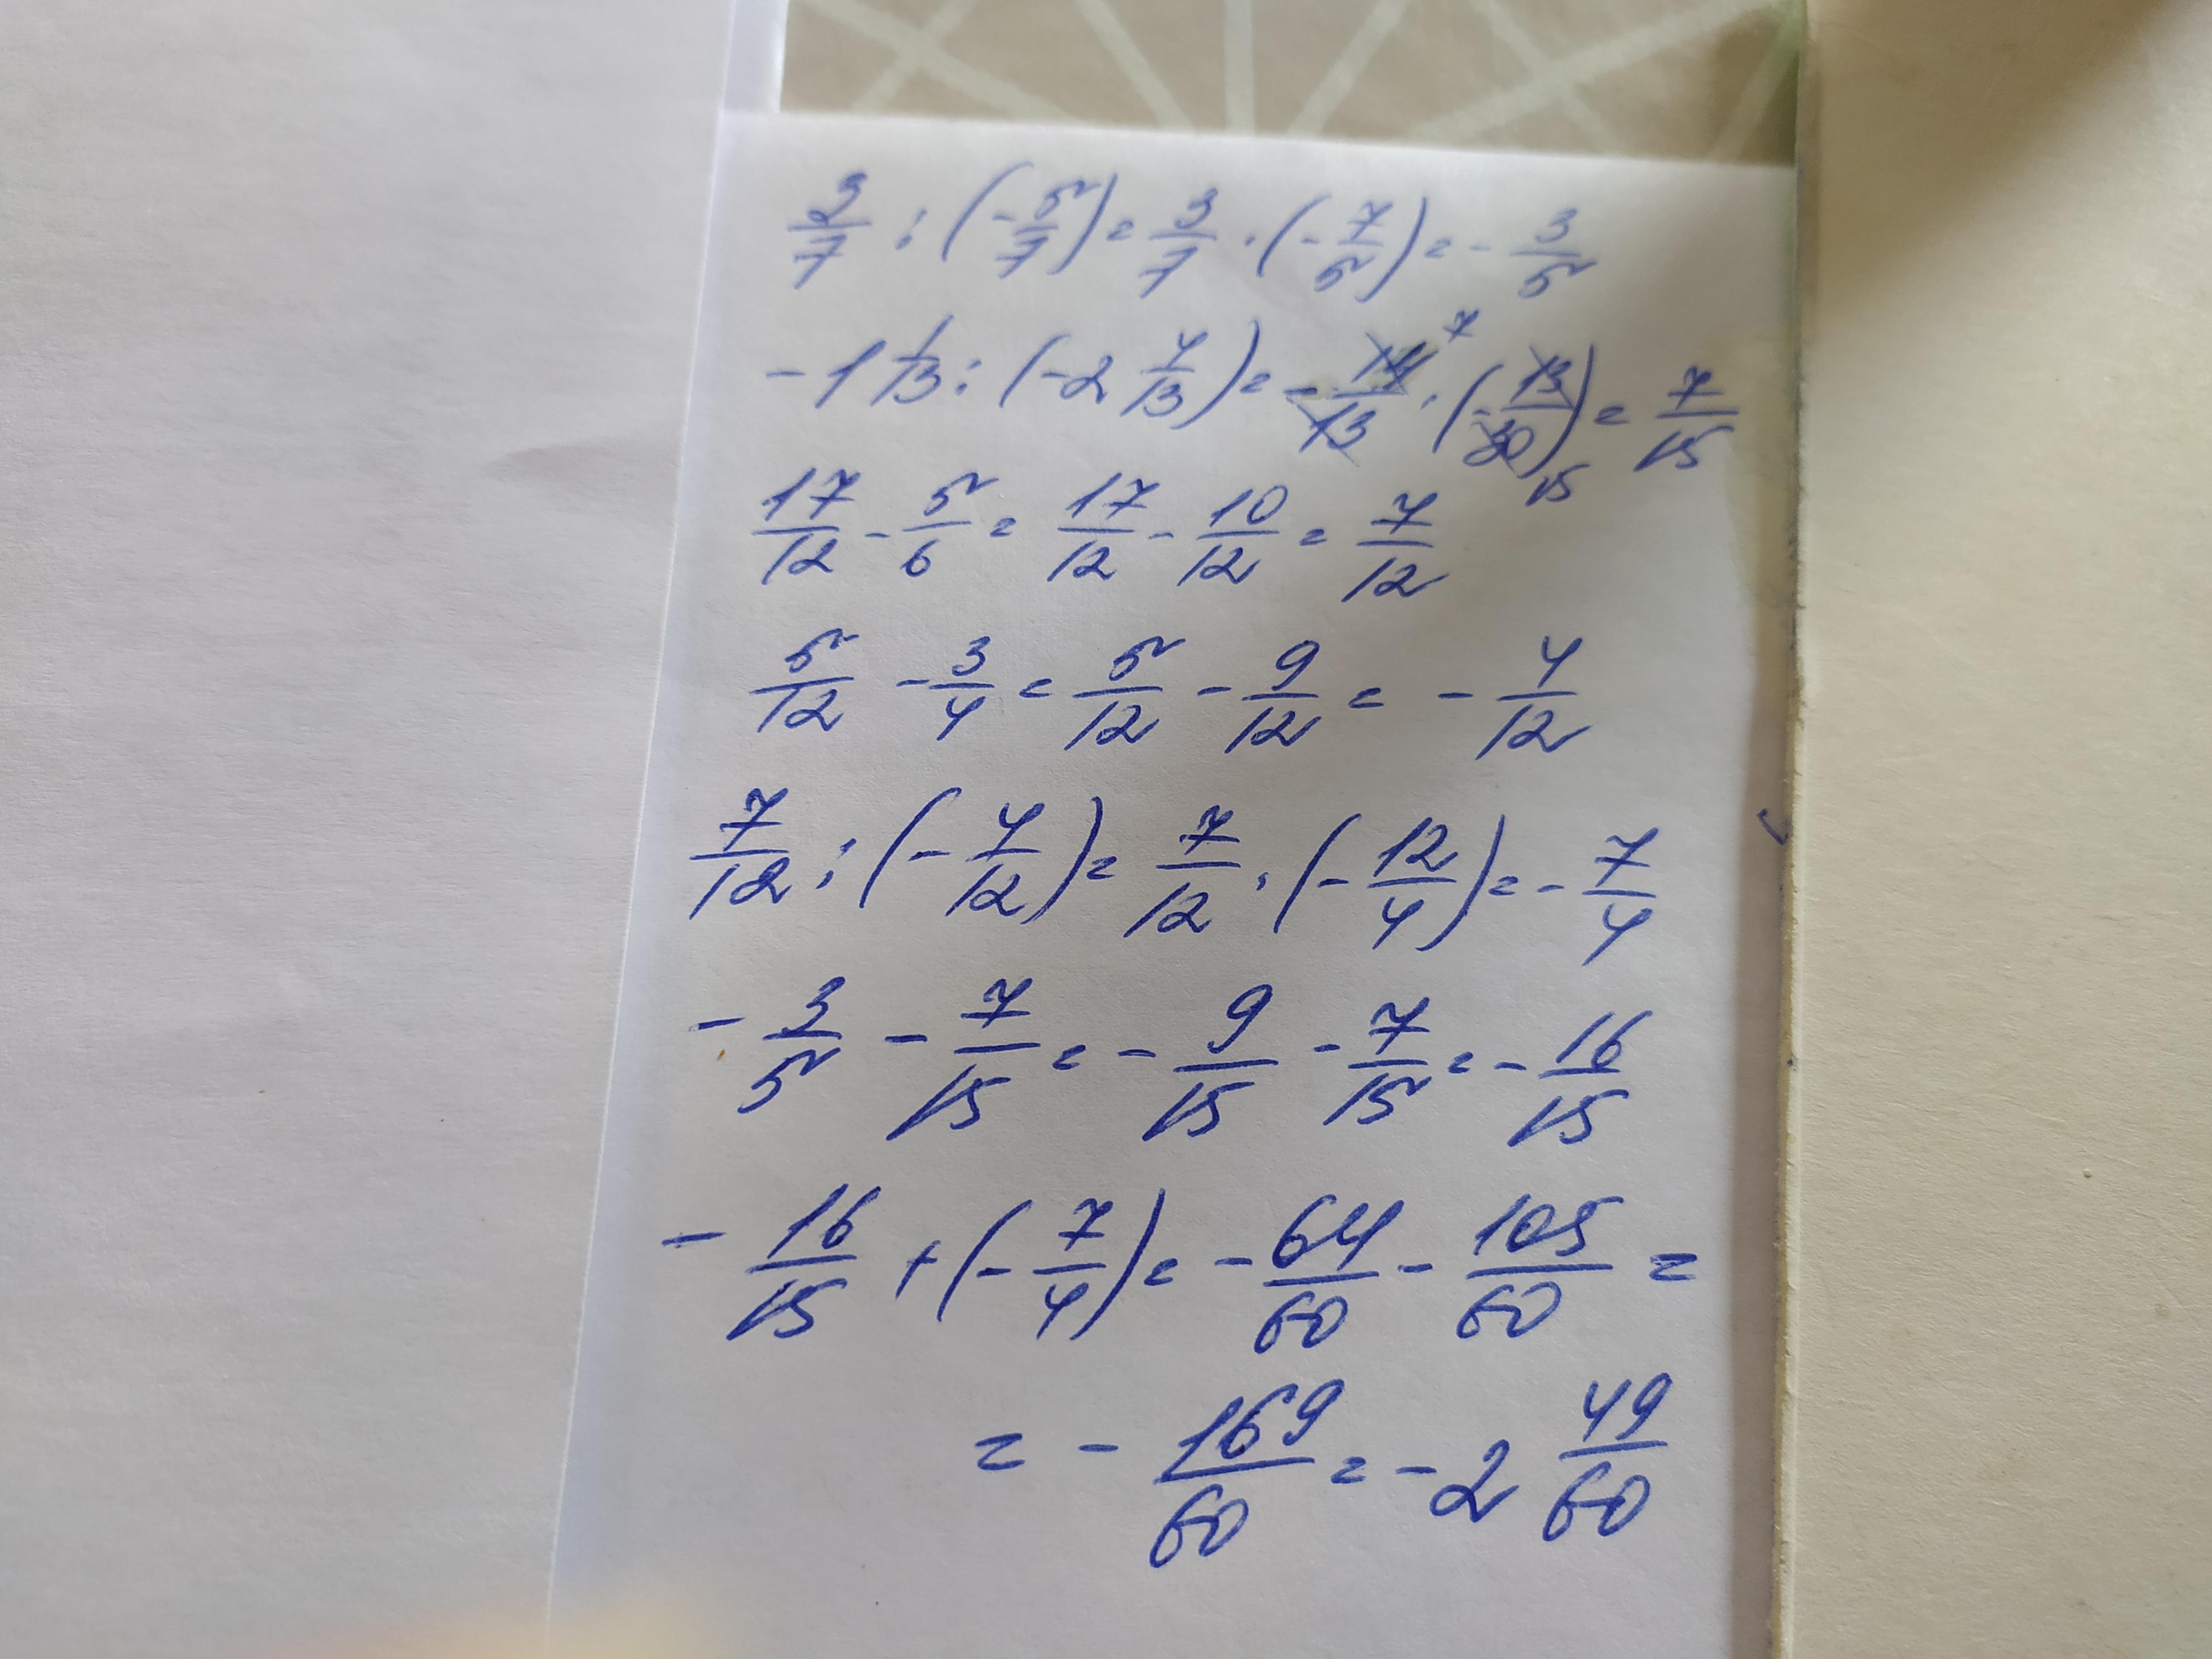 3/7 : (-5/7) = 3/7 · (-7/5) = - 3/5
-1 1/13 : (-2 4/13) = - 14/13 · (-13/30) = 7/15
17/12 - 5/6 = 17/12 - 10/12 = 7/12
5/12 - 3/4 = 5/12 - 9/12 = - 4/12
7/12 : (- 4/12) = 7/12 · (- 12/4) = - 7/4
- 3/5 - 7/15 = - 9/15 - 7/15 = - 16/15
- 16/15 + (- 7/4) = - 64/60 - 105/60 =
= - 169/60 = -2 49/60